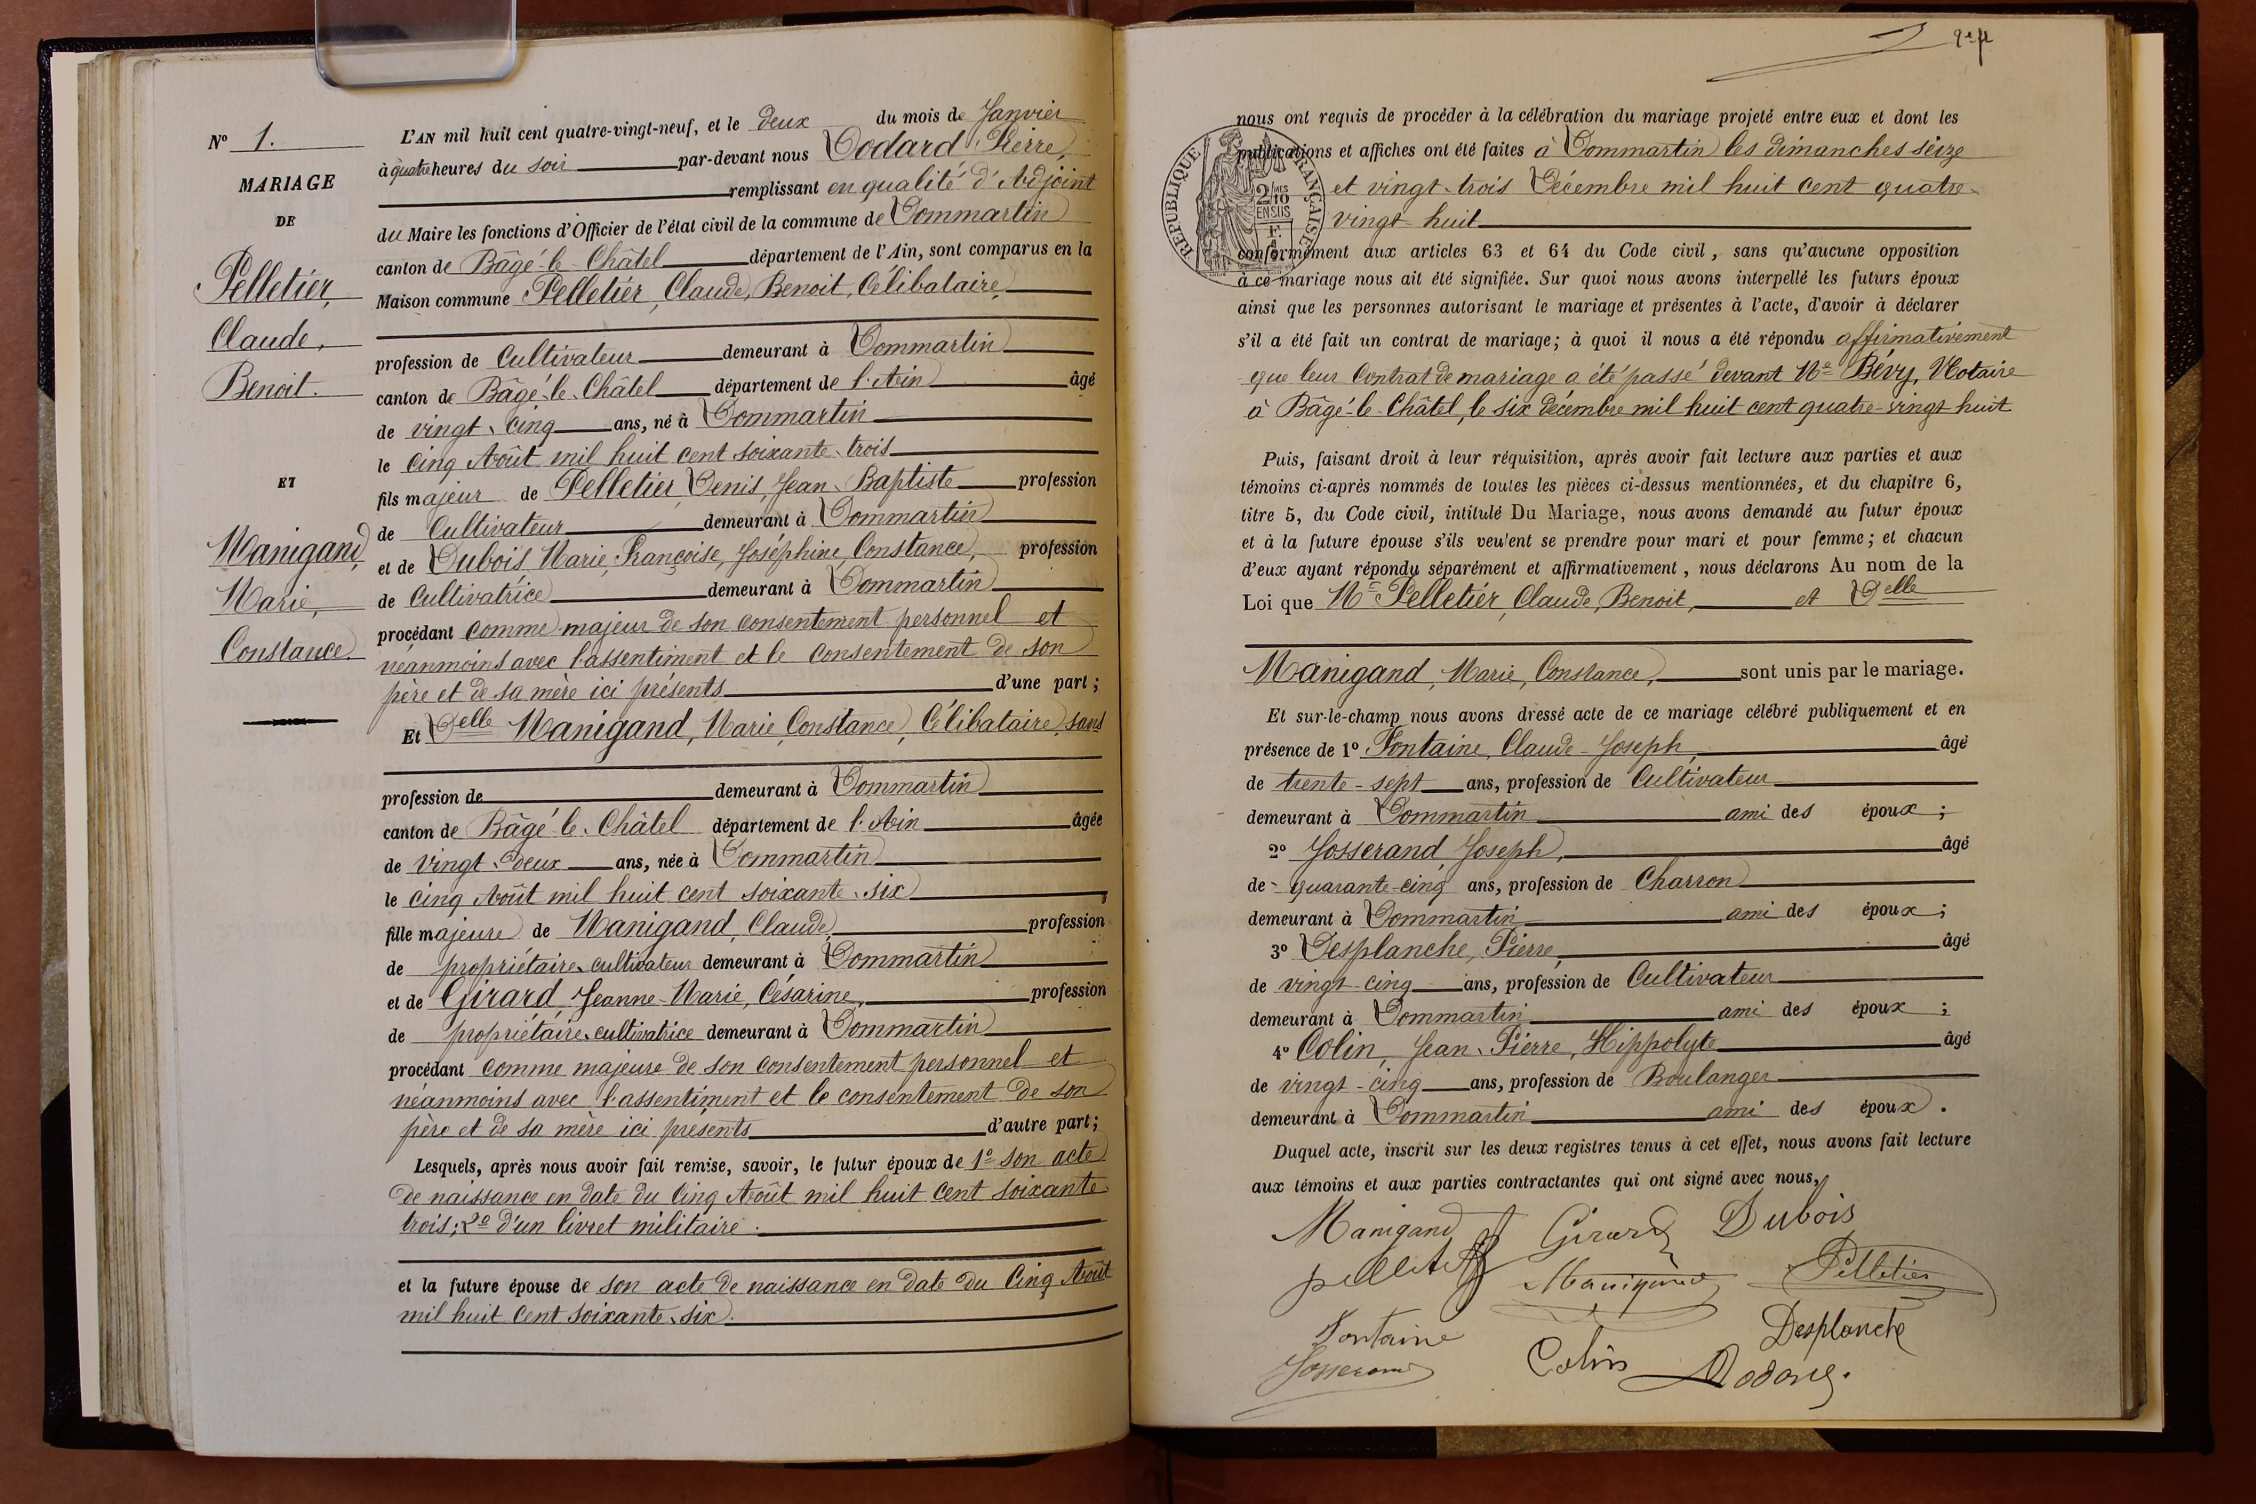 N° 1.
MARIAGE
DE
Pelletier,
Claude,
Benoit.
ET
Manigand,
Marie,
Constance.
L'AN mil huit cent quatre-vingt-neuf, et le deux du mois de Janvier
à quatre heures du soir par-devant nous Dodard Pierre,
remplissant en qualité d'Adjoint
du Maire les fonctions d'Officier de l'état civil de la commune de Dommartin
canton de Bâgé-le-Châtel département de l'Ain, sont comparus en la
Maison commune Pelletier, Claude, Benoit, Célibataire,
profession de Cultivateur demeurant à Dommartin
canton de Bâgé-le-Châtel département de l'Ain âgé
de vingt-cinq ans, né à Dommartin
le cinq Août mil huit cent soixante-trois
fils majeur de Pelletier Denis, Jean-Baptiste profession
de Cultivateur demeurant à Dommartin
et de Dubois, Marie, Françoise, Joséphine, Constance, profession
de Cultivatrice demeurant à Dommartin
procédant comme majeur de son consentement personnel et
néanmoins avec l'assentiment et le consentement de son
père et de sa mère ici présents d'une part;
Et Delle Manigand, Marie Constance, Célibataire, sans
profession de demeurant à Dommartin
canton de Bâgé-le-Châtel département de l'Ain âgée
de vingt-deux ans, née à Dommartin
le cinq Août mil huit cent soixante-six
fille majeure de Manigand, Claude, profession
de propriétaire-cultivateur demeurant à Dommartin
et de Girard, Jeanne-Marie, Césarine, profession
de propriétaire-cultivatrice demeurant à Dommartin
procédant comme majeure de son consentement personnel et
néanmoins avec l'assentiment et le consentement de son
père et de sa mère ici présents d'autre part;
Lesquels, après nous avoir fait remise, savoir, le futur époux de 1° son acte
de naissance en date du Cinq Août mil huit cent soixante-
trois; 2° d'un livret militaire.
et la future épouse de son acte de naissance en date du Cinq Août
mil huit cent soixante-six.
nous ont requis de procéder à la célébration du mariage projeté entre eux et dont les
publications et affiches ont été faites à Dommartin les dimanches seize
et vingt-trois Décembre mil huit cent quatre-
vingt-huit
RÉPUBLIQUE FRANÇAISE
2/10
EN SUS
conformément aux articles 63 et 64 du Code civil, sans qu'aucune opposition
à ce mariage nous ait été signifiée. Sur quoi nous avons interpellé les futurs époux
ainsi que les personnes autorisant le mariage et présentes à l'acte, d'avoir à déclarer
s'il a été fait un contrat de mariage; à quoi il nous a été répondu affirmativement
que leur Contrat de mariage a été passé devant Me Bévy, Notaire
à Bâgé-le-Châtel, le six décembre mil huit cent quatre-vingt huit
Puis, faisant droit à leur réquisition, après avoir fait lecture aux parties et aux
témoins ci-après nommés de toutes les pièces ci-dessus mentionnées, et du chapitre 6,
titre 5, du Code civil, intitulé Du Mariage, nous avons demandé au futur époux
et à la future épouse s'ils veulent se prendre pour mari et pour femme; et chacun
d'eux ayant répondu séparément et affirmativement, nous déclarons Au nom de la
Loi que Mr Pelletier, Claude, Benoit, et Delle
Manigand, Marie, Constance, sont unis par le mariage.
Et sur-le-champ nous avons dressé acte de ce mariage célébré publiquement et en
présence de 1° Fontaine, Claude-Joseph, âgé
de trente-sept ans, profession de Cultivateur
demeurant à Dommartin ami des époux;
2° Josserand Joseph, âgé
de quarante-cinq ans, profession de Charron
demeurant à Dommartin ami des époux;
3° Desplanche, Pierre, âgé
de vingt-cinq ans, profession de Cultivateur
demeurant à Dommartin ami des époux;
4° Colin, Jean-Pierre, Hippolyte âgé
de vingt-cinq ans, profession de Boulanger
demeurant à Dommartin ami des époux.
Duquel acte, inscrit sur les deux registres tenus à cet effet, nous avons fait lecture
aux témoins et aux parties contractantes qui ont signé avec nous,
Manigand Girard Dubois
pelletier Manigand Pelletier
Fontaine Desplanche
Josserand Colin Dodard.